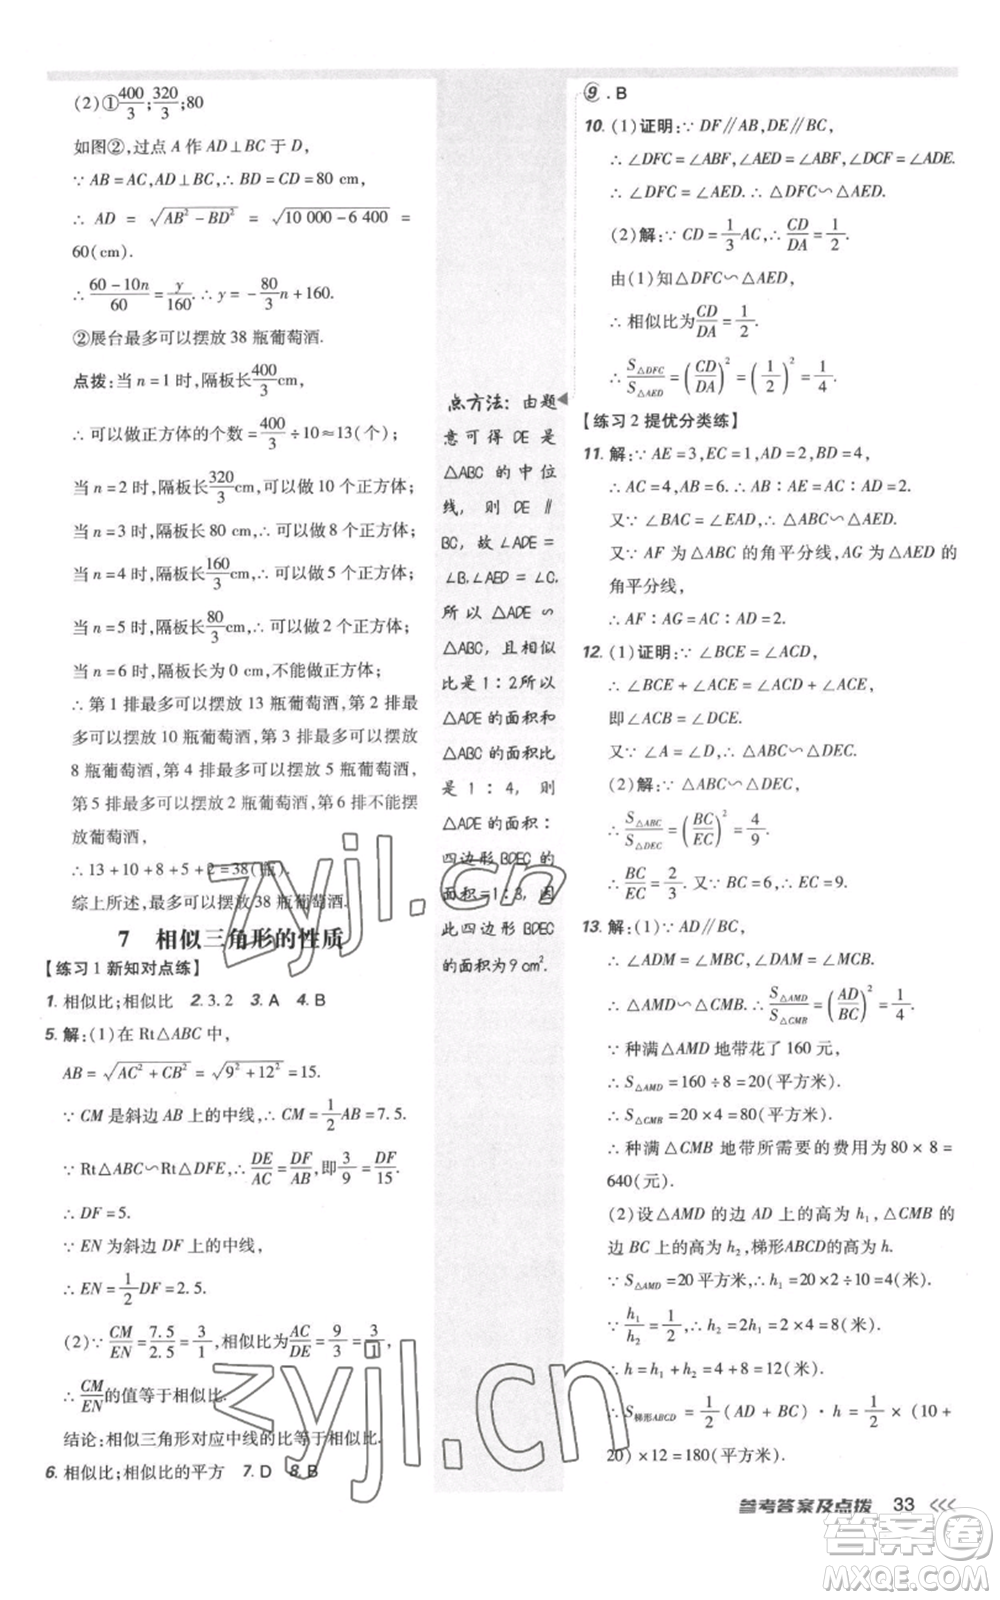 (2)①400/3;320/3;80
如图②,过点 A 作 AD⊥BC 于 D,
∵ AB=AC,AD⊥BC,∴ BD=CD=80 cm,
∴ AD = √(AB²-BD²) = √(10 000-6 400) =
60(cm).
∴ (60-10n)/60=y/160. ∴ y=-80/3n+160.
②展台最多可以摆放 38 瓶葡萄酒.
点拨:当 n=1 时,隔板长400/3cm,
∴ 可以做正方体的个数=400/3÷10≈13(个);
当 n=2 时,隔板长320/3,可以做 10 个正方体;
当 n=3 时,隔板长 80,∴ 可以做 8 个正方体;
当 n=4 时,隔板长160/3,∴ 可以做 5 个正方体;
当 n=5 时,隔板长80/3,∴ 可以做 2 个正方体;
当 n=6 时,隔板长为 0 cm,不能做正方体;
∴ 第 1 排最多可以摆放 13 瓶葡萄酒,第 2 排最
多可以摆放 10 瓶葡萄酒,第 3 排最多可以摆放
8 瓶葡萄酒,第 4 排最多可以摆放 5 瓶葡萄酒,
第 5 排最多可以摆放 2 瓶葡萄酒,第 6 排不能摆
放葡萄酒,
∴ 13+10+8+5+2=38(瓶).
综上所述,最多可以摆放 38 瓶葡萄酒.
7 相似三角形的性质
【练习 1 新知对点练】
1. 相似比;相似比 2. 3.2 3. A 4. B
5. 解:(1)在 Rt△ABC 中,
AB=√(AC²+CB²)=√(9²+12²)=15.
∵ CM 是斜边 AB 上的中线,∴ CM=1/2AB=7.5.
∵ Rt△ABC∽Rt△DFE,∴ DE/AC=DF/AB,即3/9=DF/15.
∴ DF=5.
∵ EN 为斜边 DF 上的中线,
∴ EN=1/2DF=2.5.
(2)∵ CM/EN=7.5/2.5=3/1,相似比为AC/DE=9/3=3/1,
∴ CM/EN的值等于相似比.
结论:相似三角形对应中线的比等于相似比.
6. 相似比;相似比的平方 7. D 8. B
点方法:由题
意可得 DE 是
△ABC 的中位
线,则 DE∥
BC,故∠ADE=
∠B,∠AED=∠C.
所以△ADE∽
△ABC,且相似
比是 1:2所以
△ADE 的面积和
△ABC 的面积比
是 1:4,则
△ADE 的面积:
四边形 BDEC 的
面积=1:3,因
此四边形 BDEC
的面积为9 cm².
9. B
10. (1)证明:∵ DF∥AB,DE∥BC,
∴ ∠DFC=∠ABF,∠AED=∠ABF,∠DCF=∠ADE.
∴ ∠DFC=∠AED. ∴ △DFC∽△AED.
(2)解:∵ CD=1/3AC,∴ CD/DA=1/2.
由(1)知△DFC∽△AED.
∴ 相似比为CD/DA=1/2.
∴ S△DFC/S△AED=(CD/DA)²=(1/2)²=1/4.
【练习 2 提优分类练】
11. 解:∵ AE=3,EC=1,AD=2,BD=4,
∴ AC=4,AB=6. ∴ AB∶AE=AC∶AD=2.
又∵ ∠BAC=∠EAD,∴ △ABC∽△AED.
又∵ AF 为△ABC 的角平分线,AG 为△AED 的
角平分线,
∴ AF∶AG=AC∶AD=2.
12. (1)证明:∵ ∠BCE=∠ACD,
∴ ∠BCE+∠ACE=∠ACD+∠ACE,
即∠ACB=∠DCE.
又∵ ∠A=∠D,∴ △ABC∽△DEC.
(2)解:∵ △ABC∽△DEC,
∴ S△ABC/S△DEC=(BC/EC)²=4/9.
∴ BC/EC=2/3. 又∵ BC=6,∴ EC=9.
13. 解:(1)∵ AD∥BC,
∴ ∠ADM=∠CBM,∠DAM=∠BCM.
∴ △AMD∽△CMB. ∴ S△AMD/S△CMB=(AD/BC)²=1/4.
∵ 种满△AMD 地带花了 160 元,
∴ S△AMD=160÷8=20(平方米).
∴ S△CMB=20×4=80(平方米).
∴ 种满△CMB 地带所需要的费用为 80×8=
640(元).
(2)设△AMD 的边 AD 上的高为 h₁,△CMB 的
边 BC 上的高为 h₂,梯形ABCD的高为 h.
∵ S△AMD=20 平方米,∴ h₁=20×2÷10=4(米).
∵ h₁/h₂=1/2,∴ h₂=2h₁=2×4=8(米).
∴ h=h₁+h₂=4+8=12(米).
∴ S梯形ABCD=1/2(AD+BC)·h=1/2×(10+
20)×12=180(平方米).
zyjl.cn
zyjl.cn
参考答案及点拨 33
答案卷
MXQE.COM